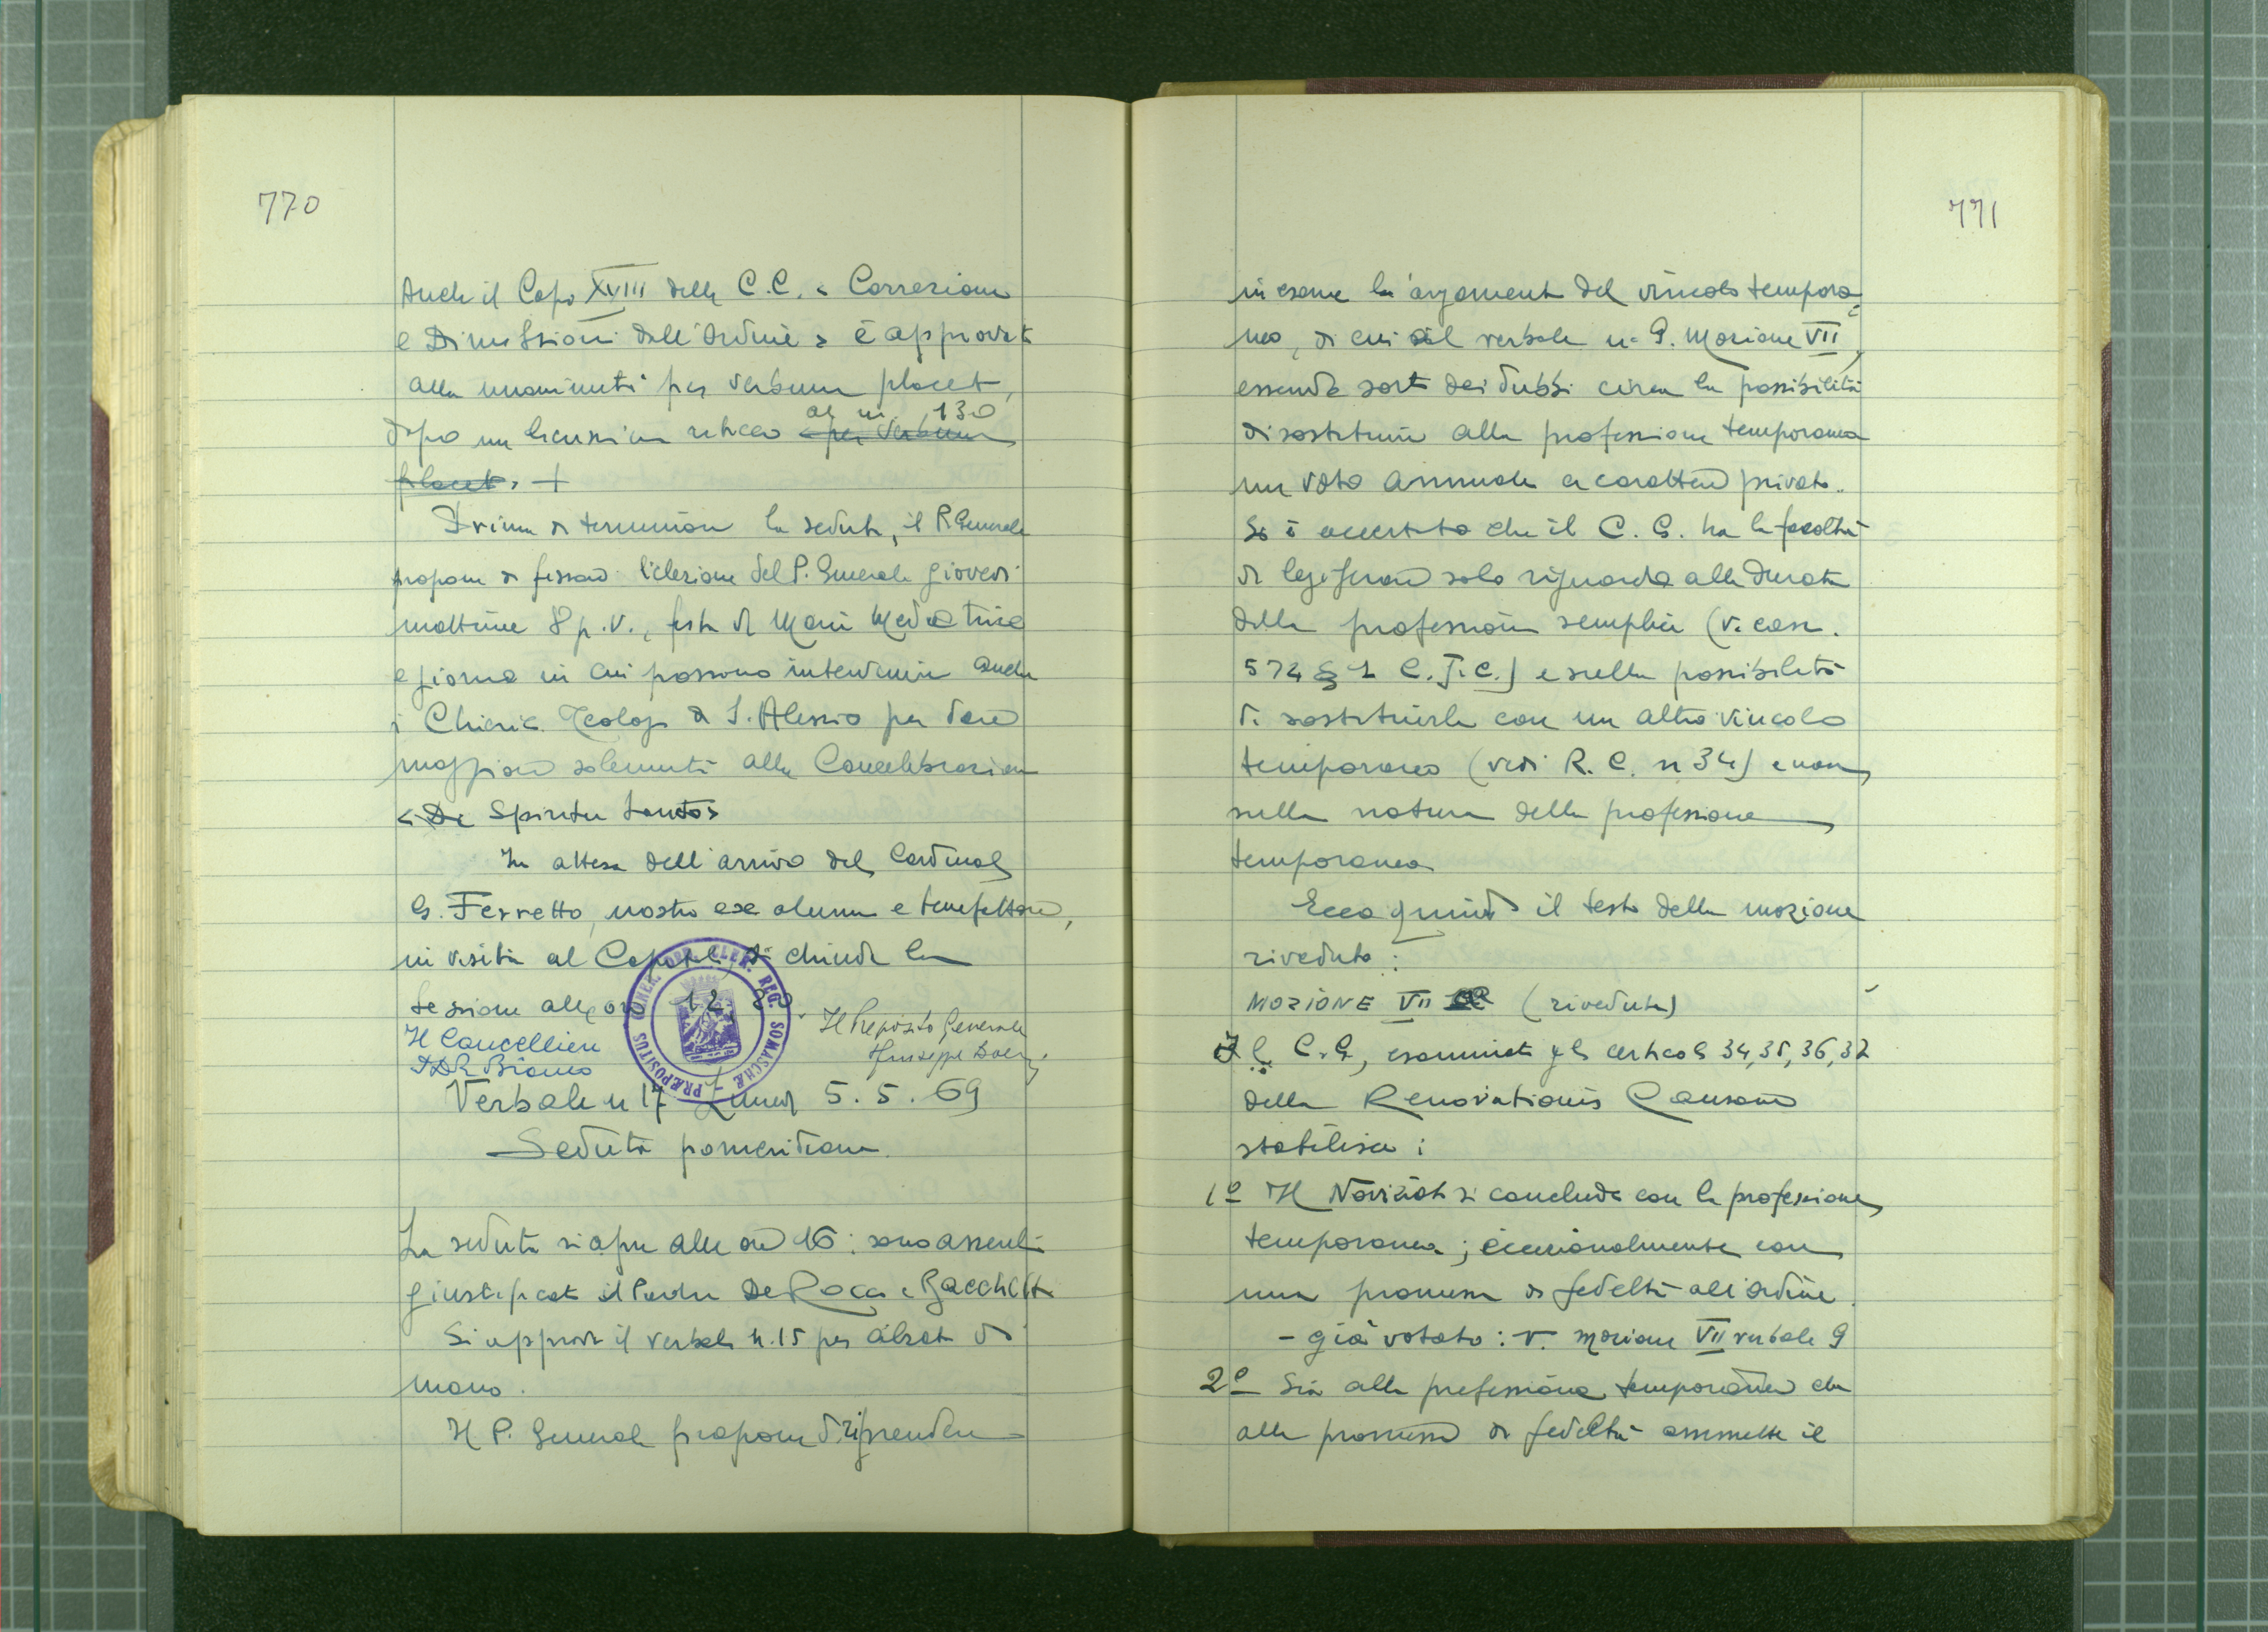 770
Anche il Capo XVIII delle C.C. « Correzione
e Dimissioni dall'Ordine » è approvato
alla unanimità per verbum placet,
dopo un discussione al n. 130 per verbum
placet. +
Prima di terminare la seduta, il P. Generale
propone di fissare l'elezione del P. Generale giovedì
mattina 8 p.v., festa di Maria Mediatrice
e giorno in cui possono intervenire anche
i Chierici Teologi di S. Alessio per dare
maggiore solennità alla Concelebrazione
« De Spiritu Sancto »
In attesa dell'arrivo del Cardinale
G. Ferretto, nostro ex alunno e benefattore,
in visita al Capitolo, si chiude la
sessione alle ore 12.30.
Il Cancelliere
Il Preposito Generale
Giuseppe Boeris
P. De Bianco
PRÆPOSITUS GENER. ORD. CLER. REG. SOMASCHÆ
Verbale n 17 Lunedì 5.5.69
Seduta pomeridiana.
La seduta si apre alle ore 16: sono assenti
giustificati i Padri De Rocco e Bacchetti
Si approva il verbale n.15 per alzata di
mano.
Il P. Generale propone di riprendere
771
in esame l'argomento del vincolo tempora-
neo, di cui al verbale n. 9. Mozione VII,
essendo sorti dei dubbi circa la possibilità
di sostituire alla professione temporanea
un voto annuale a carattere privato.
Si è accertato che il C.G. ha la facoltà
di legiferare solo riguardo alla durata
della professione semplice (v. can.
574 § 1 C.J.C.) e sulla possibilità
di sostituirla con un altro vincolo
temporaneo (vedi R.C. n 34) e non
sulla natura della professione
temporanea
Ecco quindi il testo della mozione
riveduto:
MOZIONE VII (riveduta)
Il C.G., esaminati gli articoli 34, 35, 36, 37
della Renovationis Causam
stabilisce:
1º Il Noviziato si conclude con la professione
temporanea; eccezionalmente con
una promessa di fedeltà all'Ordine.
- già votato: v. mozione VII verbale 9
2º Sia alla professione temporanea che
alla promessa di fedeltà ammette il